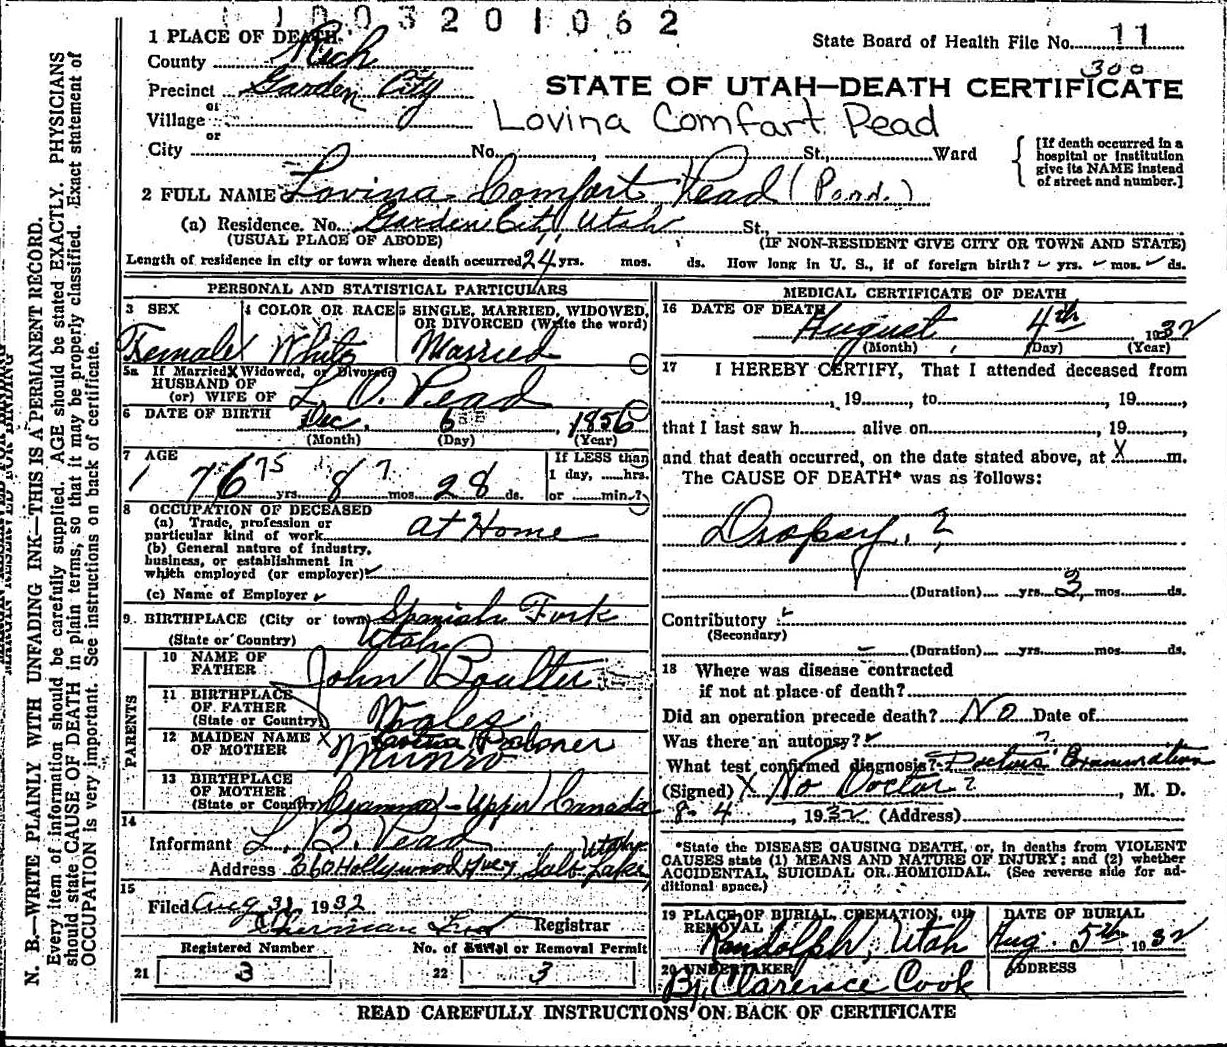 1003201062
1 PLACE OF DEATH. State Board of Health File No. 11
County Rich 300
Precinct Garden City STATE OF UTAH—DEATH CERTIFICATE
or
Village Lovina Comfart Pead
or
City No. , St., Ward [If death occurred in a hospital or institution give its NAME instead of street and number.]
2 FULL NAME Lovina Comfort Pead (Pond.)
(a) Residence. No. Garden City Utah St.,
(USUAL PLACE OF ABODE) (IF NON-RESIDENT GIVE CITY OR TOWN AND STATE)
Length of residence in city or town where death occurred 24 yrs. mos. ds. How long in U. S., if of foreign birth? yrs. mos. ds.
PERSONAL AND STATISTICAL PARTICULARS
3 SEX 4 COLOR OR RACE 5 SINGLE, MARRIED, WIDOWED, OR DIVORCED (Write the word)
Female White Married
5a If Married, Widowed, or Divorced
HUSBAND OF
(or) WIFE OF L. O. Pead
6 DATE OF BIRTH Dec. 6 , 1856
(Month) (Day) (Year)
7 AGE If LESS than
76 75 yrs. 8 7 mos. 28 ds. 1 day, hrs.
or min.?
8 OCCUPATION OF DECEASED
(a) Trade, profession or
particular kind of work at Home
(b) General nature of industry,
business, or establishment in
which employed (or employer)
(c) Name of Employer
9. BIRTHPLACE (City or town) Spanish Fork
(State or Country) Utah
PARENTS
10 NAME OF
FATHER John Boulter
11 BIRTHPLACE
OF FATHER
(State or Country) Wales
12 MAIDEN NAME
OF MOTHER Munro
13 BIRTHPLACE
OF MOTHER
(State or Country) - Upper Canada
14
Informant L. B. Pead
Address 360 Hollywood Avey Salt Lake, Utah.
15
Filed Aug 31 1932
Registrar
Registered Number No. of Burial or Removal Permit
21 3 22 3
MEDICAL CERTIFICATE OF DEATH
16 DATE OF DEATH August 4th 1932
(Month) (Day) (Year)
17 I HEREBY CERTIFY, That I attended deceased from
, 19 , to , 19 ,
that I last saw h alive on , 19 ,
and that death occurred, on the date stated above, at X m.
The CAUSE OF DEATH* was as follows:
Dropsy. ?
(Duration) yrs. 3 mos. ds.
Contributory
(Secondary)
(Duration) yrs. mos. ds.
18 Where was disease contracted
if not at place of death?
Did an operation precede death? No Date of
Was there an autopsy? ?
What test confirmed diagnosis? Doctors Examination
(Signed) X No Doctor? , M. D.
8-4 , 1932 (Address)
*State the DISEASE CAUSING DEATH, or, in deaths from VIOLENT
CAUSES state (1) MEANS AND NATURE OF INJURY; and (2) whether
ACCIDENTAL, SUICIDAL OR HOMICIDAL. (See reverse side for ad-
ditional space.)
19 PLACE OF BURIAL, CREMATION, OR DATE OF BURIAL
REMOVAL
Randolph, Utah Aug. 5th 1932
20 UNDERTAKER ADDRESS
By Clarence Cook
READ CAREFULLY INSTRUCTIONS ON BACK OF CERTIFICATE
N. B.—WRITE PLAINLY WITH UNFADING INK—THIS IS A PERMANENT RECORD.
Every item of information should be carefully supplied. AGE should be stated EXACTLY. PHYSICIANS
should state CAUSE OF DEATH in plain terms, so that it may be properly classified. Exact statement of
OCCUPATION is very important. See instructions on back of certificate.